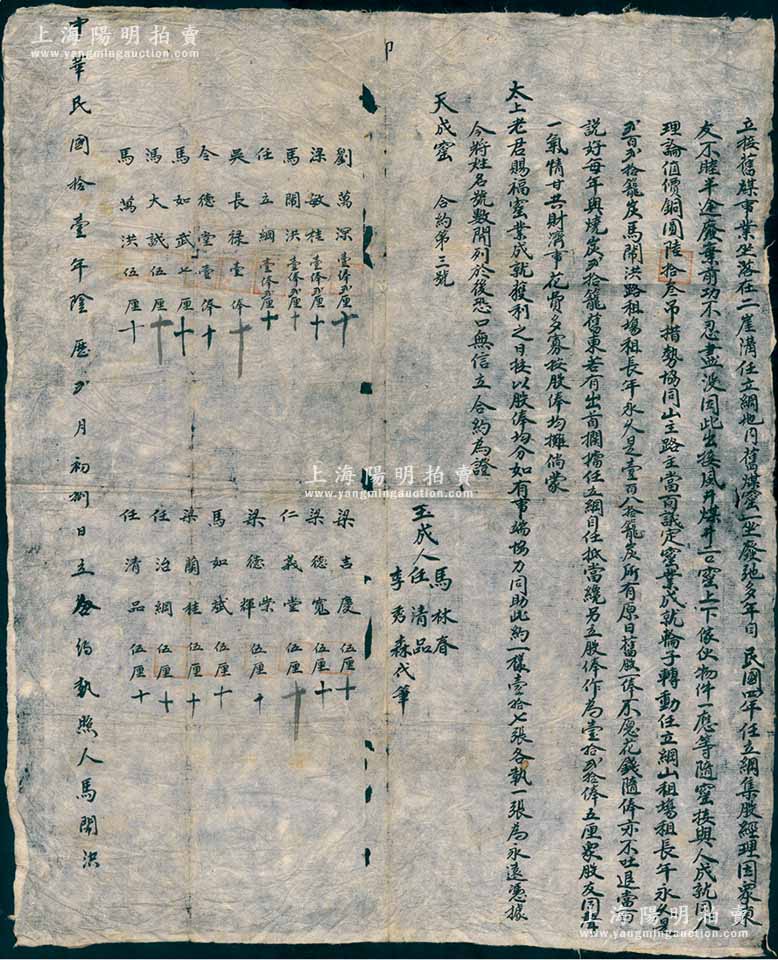 立接舊煤事業坐落在二崖溝任立綱地內舊煤窰一坐廢弛多年自民國四年任立綱集股經理因衆東
友不睦半途廢棄前功不忍盡没因此出接風井煤井二口窰上下傢伙物件一應等隨窰接與人成就同
理論值價銅圓陸拾叁吊措勢協同山主路主當面議定窰業成就輪子轉動任立綱山租塲租長年永久是
貳百貳拾籠炭馬開洪路租塲租長年永久是壹百八拾籠炭所有原日舊股一俸不愿花錢隨俸亦不吐退當
説好每年與燒炭貳拾籠舊東若有出首攔擋任立綱自任抵當纔另立股俸作為壹拾貳拾俸五厘衆股友同聲
一氣情甘共財濟市花費多寡按股俸均攤倘蒙
太上老君賜福窰業成就獲利之日按以股俸均分如有事端協力同助此約一樣壹拾七張各執一張為永遠憑據
今將姓名號數開列於後恐口無信立合約為證
天成窰 合約第三號
王成人 馬林春
任清品
李秀森代筆
劉萬深 壹俸貳厘 十
梁敏桂 壹俸貳厘 十
馬開洪 壹俸貳厘 十
任立綱 壹俸貳厘 十
吳長祿 壹俸 十
令德堂 壹俸 十
馬如武 七厘 十
馮大誠 伍厘 十
馬萬洪 伍厘 十
梁吉慶 伍厘 十
梁德寬 伍厘 十
仁義堂 伍厘 十
梁德榮
輝 伍厘 十
馬如斌 伍厘 十
梁蘭桂 伍厘 十
任治綱 伍厘 十
任清品 伍厘 十
中華民國拾壹年陰歷貳月初捌日立合約執照人馬開洪
上海陽明拍賣
www.yangmingauction.com
上海陽明拍賣
www.yangmingauction.com
上海陽明拍賣
www.yangmingauction.com
上海陽明拍賣
www.yangmingauction.com